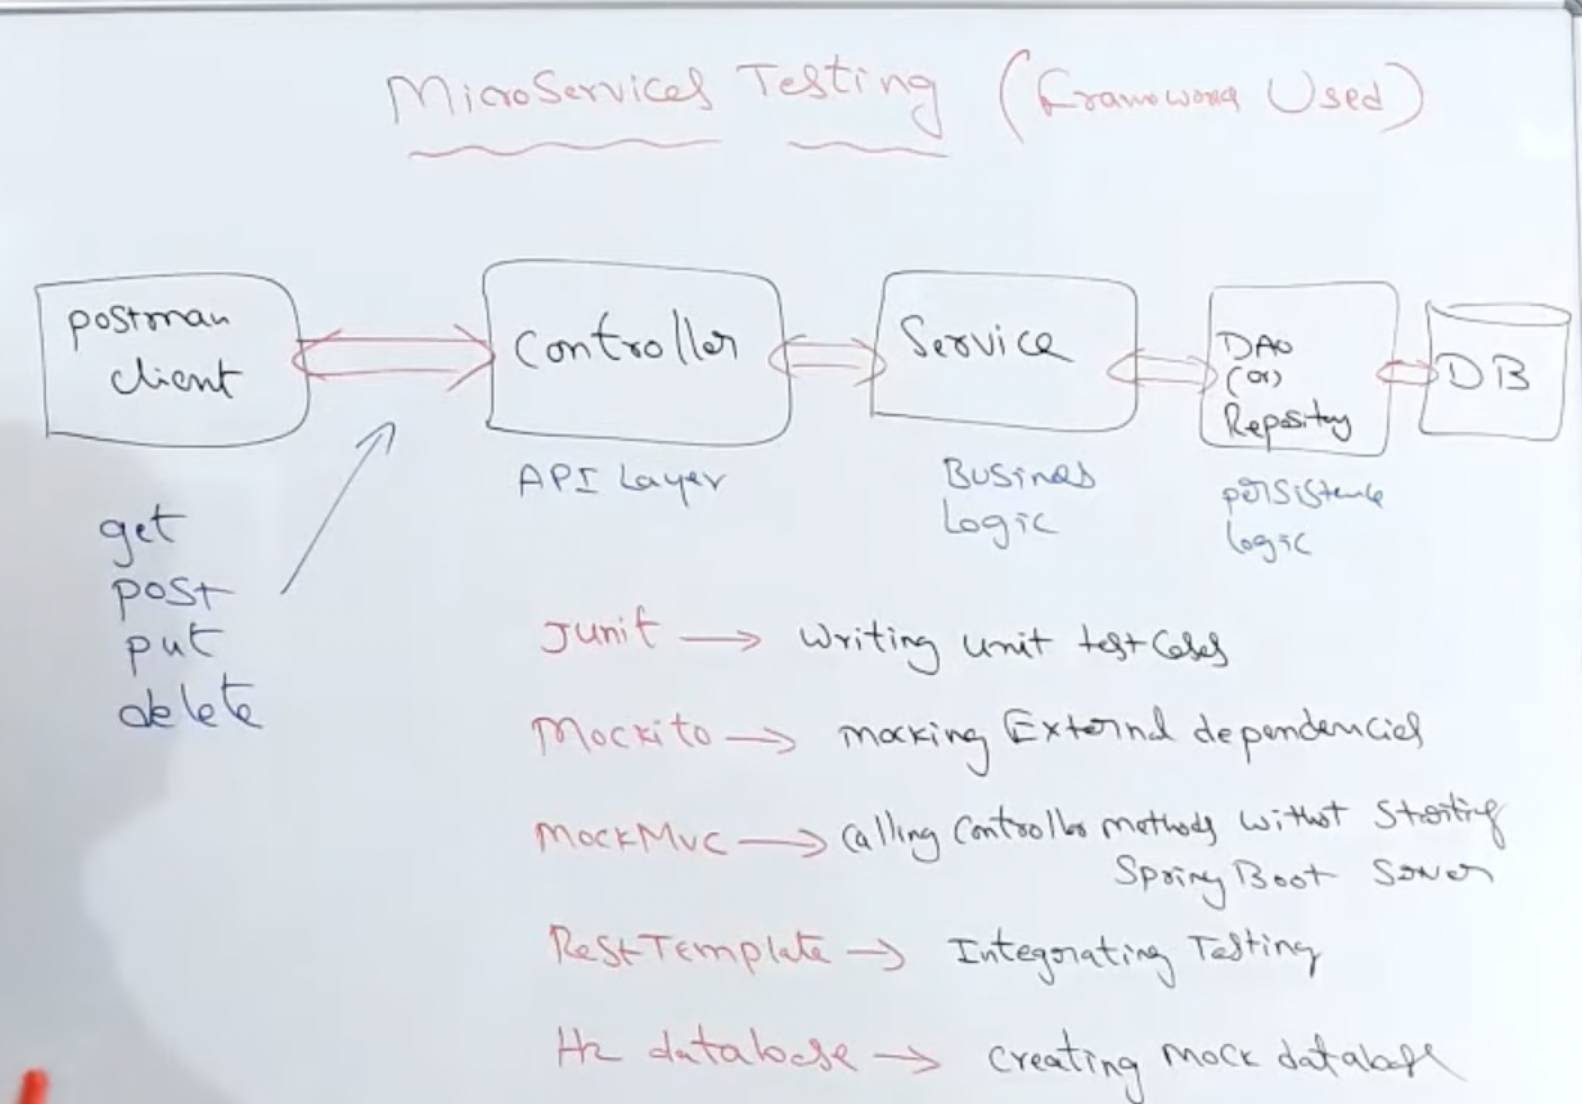 MicroServices Testing (Framework Used)
postman
client
Controller
Service
DAO
(or)
Repository
DB
API Layer
Business
Logic
persistence
logic
get
post
put
delete
Junit → Writing unit test Cases
Mockito → mocking External dependencies
MockMvc → Calling Controller methods without Starting
Spring Boot Server
RestTemplate → Integrating Testing
H2 database → Creating Mock database